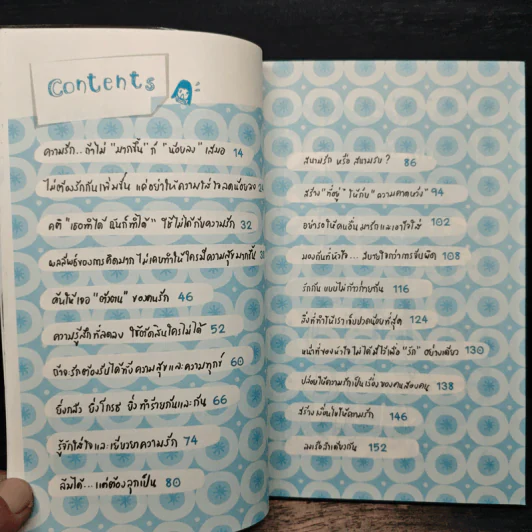 Contents
ความรัก.. ถ้าไม่ "มากขึ้น" ก็ "น้อยลง" เสมอ 14
ไม่ต้องรักกันเพิ่มขึ้น แค่อย่าให้ความใส่ใจลดน้อยลง
คติ "เธอทำได้ ฉันก็ทำได้" ใช้ไม่ได้กับความรัก 32
ผลลัพธ์ของการคิดมาก ไม่เคยทำให้ใครมีความสุขมากขึ้น
ค้นให้เจอ "ตัวตน" ของคนรัก 46
ความรู้สึกที่ลดลง ใช้ตัดสินใครไม่ได้ 52
ถ้าจะรักต้องรับได้ทั้งความสุขและความทุกข์ 60
ยิ่งกลัว ยิ่งโกรธ ยิ่งทำร้ายกันและกัน 66
รู้จักใส่ใจและเยียวยาความรัก 74
ล้มได้...แต่ต้องลุกเป็น 80
สนามรัก หรือ สนามรบ? 86
สร้าง "ที่อยู่" ให้กับ "ความคาดหวัง" 94
อย่ารอให้คนอื่นมารักและเอาใจใส่ 102
มองกันที่หัวใจ... สบายใจกว่าการจับผิด 108
รักกัน แบบไม่ก้าวก่ายกัน 116
สิ่งที่ทำให้เราเจ็บปวดน้อยที่สุด 124
หน้าที่ของหัวใจไม่ได้มีไว้เพื่อ "รัก" อย่างเดียว 130
ปล่อยให้ความรักเป็นเรื่องของคนสองคน 138
สร้างเงื่อนไขให้ความรัก 146
ลงเรือลำเดียวกัน 152